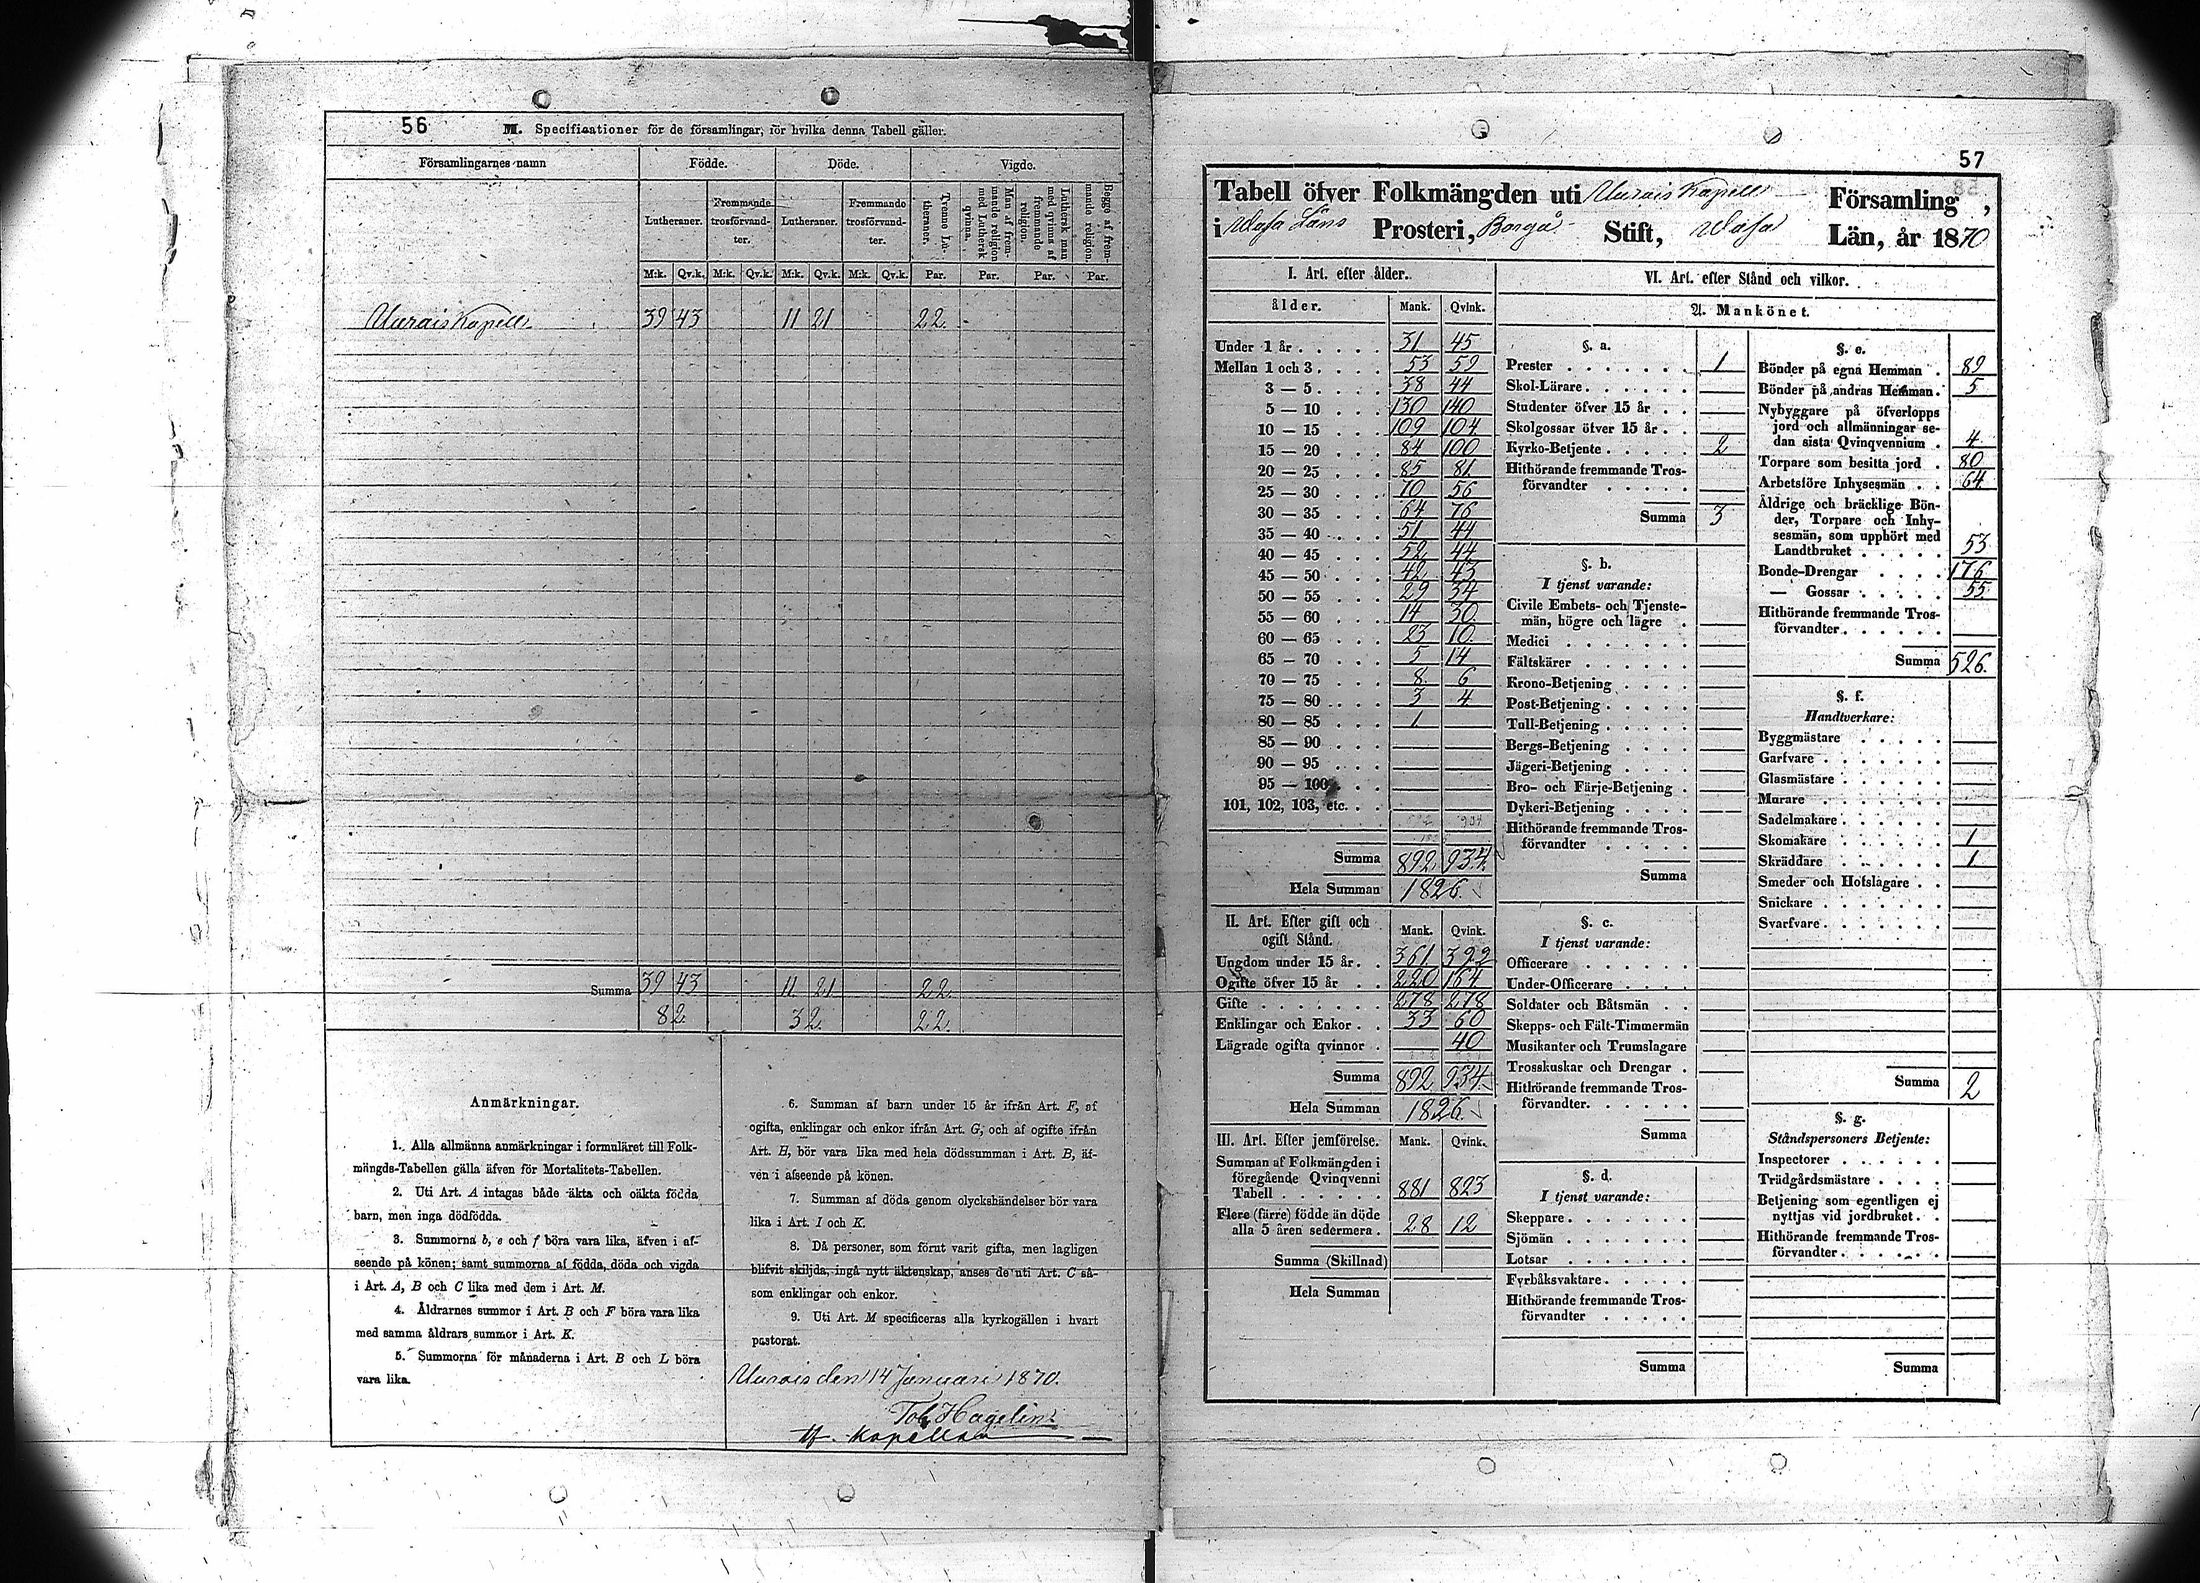 56
M. Specificationer för de församlingar, för hvilka denna Tabell gäller.
Församlingarnes namn Födde. Döde. Vigde.
Lutheraner. Fremmande trosförvandter. Lutheraner. Fremmande trosförvandter. Tvenne Lutheraner. Man af fremmande religion med Luthersk qvinna. Luthersk man med qvinna af fremmande religion. Begge af fremmande religion.
M:k. Qv.k. M:k. Qv.k. M:k. Qv.k. M:k. Qv.k. Par. Par. Par. Par.
Kapell 39 43 11 21 22
Summa 39 43 11 21 22
82 32 22
Anmärkningar.
1. Alla allmänna anmärkningar i formuläret till Folk-
mängds-Tabellen gälla äfven för Mortalitets-Tabellen.
2. Uti Art. A intagas både äkta och oäkta födda
barn, men inga dödfödda.
3. Summorna b, e och f böra vara lika, äfven i af-
seende på könen; samt summorna af födda, döda och vigda
i Art. A, B och C lika med dem i Art. M.
4. Åldrarnes summor i Art. B och F böra vara lika
med samma åldrars summor i Art. K.
5. Summorna för månaderna i Art. B och L böra
vara lika.
6. Summan af barn under 15 år ifrån Art. F, af
ogifta, enklingar och enkor ifrån Art. G, och af ogifte ifrån
Art. H, bör vara lika med hela dödssumman i Art. B, äf-
ven i afseende på könen.
7. Summan af döda genom olyckshändelser bör vara
lika i Art. I och K.
8. Då personer, som förut varit gifta, men lagligen
blifvit skiljda, ingå nytt äktenskap, anses de uti Art. C så-
som enklingar och enkor.
9. Uti Art. M specificeras alla kyrkogällen i hvart
pastorat.
den 14 Januari 1870.
Hagelin
Kapellan
57
Tabell öfver Folkmängden uti Kapell Församling,
i Wasa Läns Prosteri, Borgå Stift, Wasa Län, år 1870
I. Art. efter ålder.
ålder. Mank. Qvink.
Under 1 år 31 45
Mellan 1 och 3 53 59
3 — 5 38 44
5 — 10 130 140
10 — 15 109 104
15 — 20 84 100
20 — 25 85 81
25 — 30 70 56
30 — 35 64 76
35 — 40 51 44
40 — 45 52 44
45 — 50 42 43
50 — 55 29 34
55 — 60 14 30
60 — 65 23 10
65 — 70 5 14
70 — 75 8 6
75 — 80 3 4
80 — 85 1
85 — 90
90 — 95
95 — 100
101, 102, 103, etc.
Summa 892 934
Hela Summan 1826
II. Art. Efter gift och
ogift Stånd. Mank. Qvink.
Ungdom under 15 år 361 392
Ogifte öfver 15 år 220 164
Gifte 278 278
Enklingar och Enkor 33 60
Lägrade ogifta qvinnor 40
Summa 892 934
Hela Summan 1826
III. Art. Efter jemförelse. Mank. Qvink.
Summan af Folkmängden i
föregående Qvinqvenni
Tabell 881 823
Flere (färre) födde än döde
alla 5 åren sedermera 28 12
Summa (Skillnad)
Hela Summan
VI. Art. efter Stånd och vilkor.
A. Mankönet.
§. a.
Prester 1
Skol-Lärare
Studenter öfver 15 år
Skolgossar öfver 15 år
Kyrko-Betjente 2
Hithörande fremmande Tros-
förvandter
Summa 3
§. b.
I tjenst varande:
Civile Embets- och Tjenste-
män, högre och lägre
Medici
Fältskärer
Krono-Betjening
Post-Betjening
Tull-Betjening
Bergs-Betjening
Jägeri-Betjening
Bro- och Färje-Betjening
Dykeri-Betjening
Hithörande fremmande Tros-
förvandter
Summa
§. c.
I tjenst varande:
Officerare
Under-Officerare
Soldater och Båtsmän
Skepps- och Fält-Timmermän
Musikanter och Trumslagare
Trosskuskar och Drengar
Hithörande fremmande Tros-
förvandter.
Summa
§. d.
I tjenst varande:
Skeppare
Sjömän
Lotsar
Fyrbåksvaktare
Hithörande fremmande Tros-
förvandter
Summa
§. e.
Bönder på egna Hemman 89
Bönder på andras Hemman 5
Nybyggare på öfverlopps
jord och allmänningar se-
dan sista Qvinqvennium 4
Torpare som besitta jord 80
Arbetsföre Inhysesmän 64
Åldrige och bräcklige Bön-
der, Torpare och Inhy-
sesmän, som upphört med
Landtbruket 53
Bonde-Drengar 176
— Gossar 55
Hithörande fremmande Tros-
förvandter
Summa 526
§. f.
Handtverkare:
Byggmästare
Garfvare
Glasmästare
Murare
Sadelmakare
Skomakare 1
Skräddare 1
Smeder och Hofslagare
Snickare
Svarfvare
Summa 2
§. g.
Ståndspersoners Betjente:
Inspectorer
Trädgårdsmästare
Betjening som egentligen ej
nyttjas vid jordbruket
Hithörande fremmande Tros-
förvandter
Summa